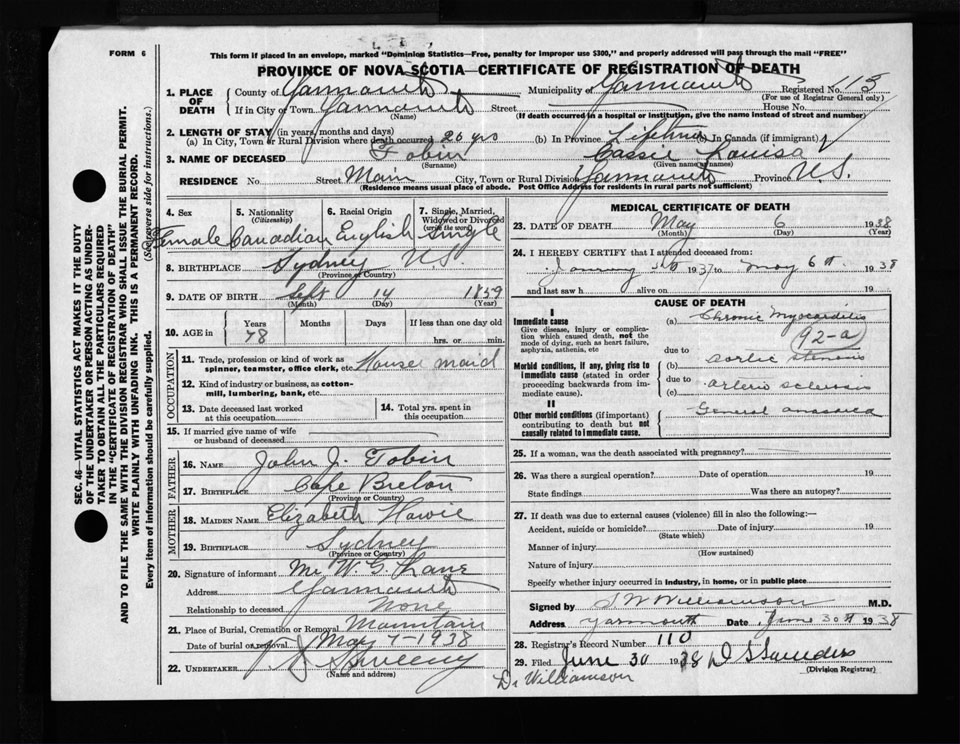 FORM 6
This form if placed in an envelope, marked "Dominion Statistics—Free, penalty for improper use $300," and properly addressed will pass through the mail "FREE"
PROVINCE OF NOVA SCOTIA—CERTIFICATE OF REGISTRATION OF DEATH
1. PLACE OF DEATH
County of Yarmouth Municipality of Yarmouth Registered No. 113
(For use of Registrar General only)
If in City or Town Yarmouth Street House No.
(Name) (If death occurred in a hospital or institution, give the name instead of street and number)
2. LENGTH OF STAY (in years, months and days)
(a) In City, Town or Rural Division where death occurred 20 yrs (b) In Province Lifetime (c) In Canada (if immigrant)
3. NAME OF DECEASED Tobin Cassie Louisa
(Surname) (Given name or names)
RESIDENCE No. Street Main City, Town or Rural Division Yarmouth Province N.S.
(Residence means usual place of abode. Post Office Address for residents in rural parts not sufficient)
4. Sex 5. Nationality (Citizenship) 6. Racial Origin 7. Single, Married, Widowed or Divorced (write the word)
Female Canadian English Single
8. BIRTHPLACE Sydney N.S.
(Province or Country)
9. DATE OF BIRTH Sept 14 1859
(Month) (Day) (Year)
10. AGE in Years Months Days If less than one day old
78 hrs. or min.
OCCUPATION
11. Trade, profession or kind of work as spinner, teamster, office clerk, etc. House maid
12. Kind of industry or business, as cotton-mill, lumbering, bank, etc.
13. Date deceased last worked at this occupation
14. Total yrs. spent in this occupation
15. If married give name of wife or husband of deceased
FATHER
16. NAME John J. Tobin
17. BIRTHPLACE Cape Breton
(Province or Country)
MOTHER
18. MAIDEN NAME Elizabeth Howie
19. BIRTHPLACE Sydney
(Province or Country)
20. Signature of informant Mr W. G. Lane
Address Yarmouth
Relationship to deceased None
21. Place of Burial, Cremation or Removal Mountain
Date of burial or removal May 7-1938
22. UNDERTAKER Sweeny
(Name and address)
MEDICAL CERTIFICATE OF DEATH
23. DATE OF DEATH May 6 1938
(Month) (Day) (Year)
24. I HEREBY CERTIFY that I attended deceased from:
January 1937 to May 6th 1938
and last saw h alive on 19
CAUSE OF DEATH
I
Immediate cause
Give disease, injury or complication which caused death, not the mode of dying, such as heart failure, asphyxia, asthenia, etc
(a) Chronic Myocarditis
92-a
due to
Morbid conditions, if any, giving rise to immediate cause (stated in order proceeding backwards from immediate cause).
(b) aortic stenosis
due to
(c) arterio sclerosis
II
Other morbid conditions (if important) contributing to death but not causally related to immediate cause.
General anasarca
25. If a woman, was the death associated with pregnancy?
26. Was there a surgical operation? Date of operation 19
State findings Was there an autopsy?
27. If death was due to external causes (violence) fill in also the following:—
Accident, suicide or homicide? Date of injury 19
(State which)
Manner of injury
(How sustained)
Nature of injury
Specify whether injury occurred in industry, in home, or in public place
Signed by S W Williamson M.D.
Address Yarmouth Date June 30th 1938
28. Registrar's Record Number 110
29. Filed June 30 1938 D S Saunders
(Division Registrar)
Dr Williamson
SEC. 46—VITAL STATISTICS ACT MAKES IT THE DUTY
OF THE UNDERTAKER OR PERSON ACTING AS UNDER-
TAKER TO OBTAIN ALL THE PARTICULARS REQUIRED
IN THE "CERTIFICATE OF REGISTRATION OF DEATH"
AND TO FILE THE SAME WITH THE DIVISION REGISTRAR WHO SHALL ISSUE THE BURIAL PERMIT.
WRITE PLAINLY WITH UNFADING INK. THIS IS A PERMANENT RECORD.
Every item of information should be carefully supplied. (See reverse side for instructions.)